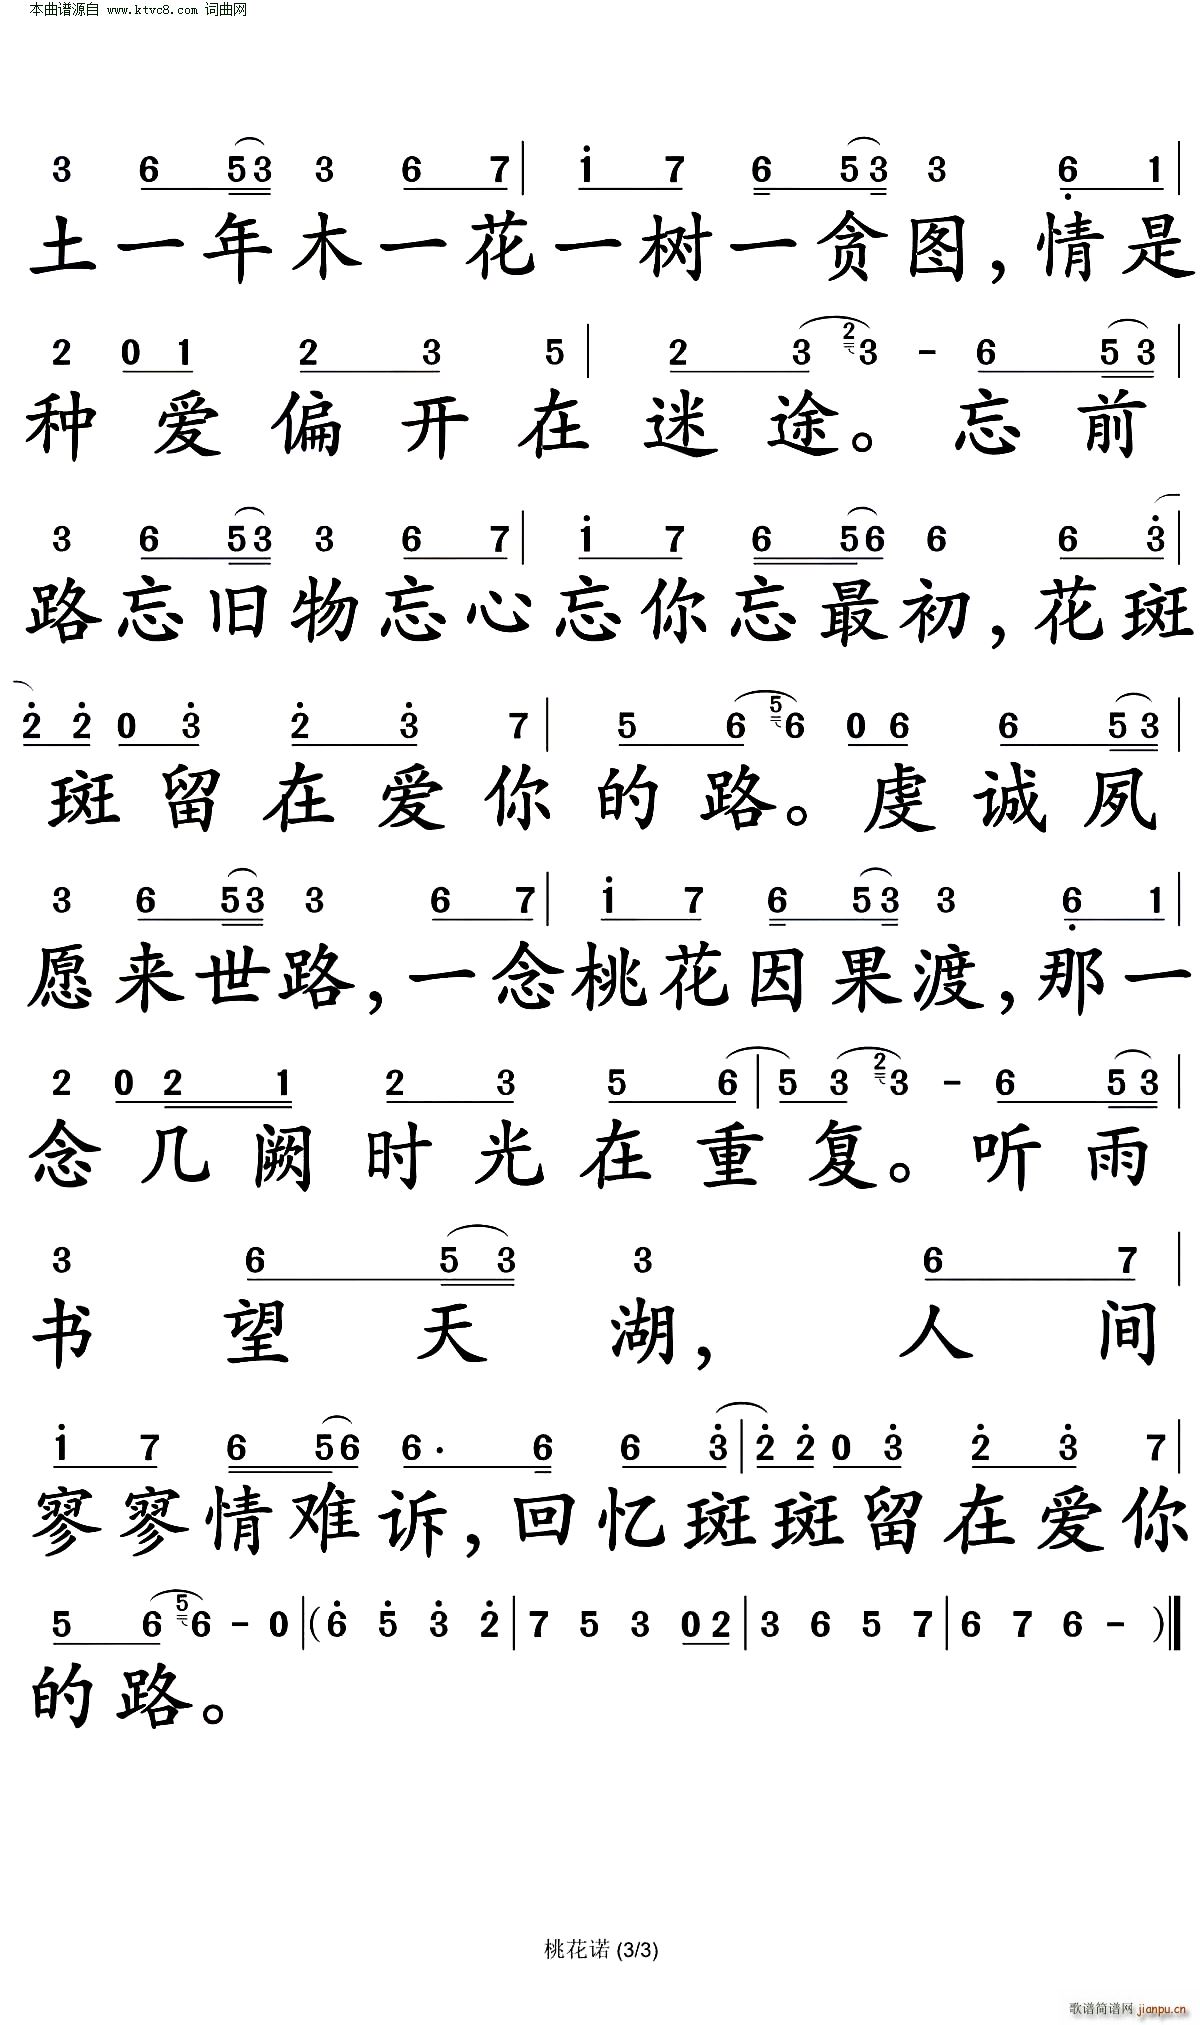 本曲谱源自 www.ktvc8.com 词曲网
3 6 53 3 6 7 | 1 7 6 53 3 6 1 |
土一年木一花一树一贪图，情是
2 0 1 2 3 5 | 2 3 2 3 - 6 53 |
种爱偏开在迷途。忘前
3 6 53 3 6 7 | 1 7 6 56 6 6 3 |
路忘旧物忘心忘你忘最初，花斑
2 2 0 3 2 3 7 | 5 6 5 6 0 6 6 53 |
斑留在爱你的路。虔诚夙
3 6 53 3 6 7 | 1 7 6 53 3 6 1 |
愿来世路，一念桃花因果渡，那一
2 0 2 1 2 3 5 6 | 5 3 2 3 - 6 53 |
念几阙时光在重复。听雨
3 6 5 3 3 6 7 |
书望天湖，人间
1 7 6 56 6· 6 6 3 | 2 2 0 3 2 3 7 |
寥寥情难诉，回忆斑斑留在爱你
5 6 5 6 - 0 | (6 5 3 2 | 7 5 3 02 | 3 6 5 7 | 6 7 6 - )‖
的路。
桃花诺 (3/3)
歌谱简谱网 jianpu.cn